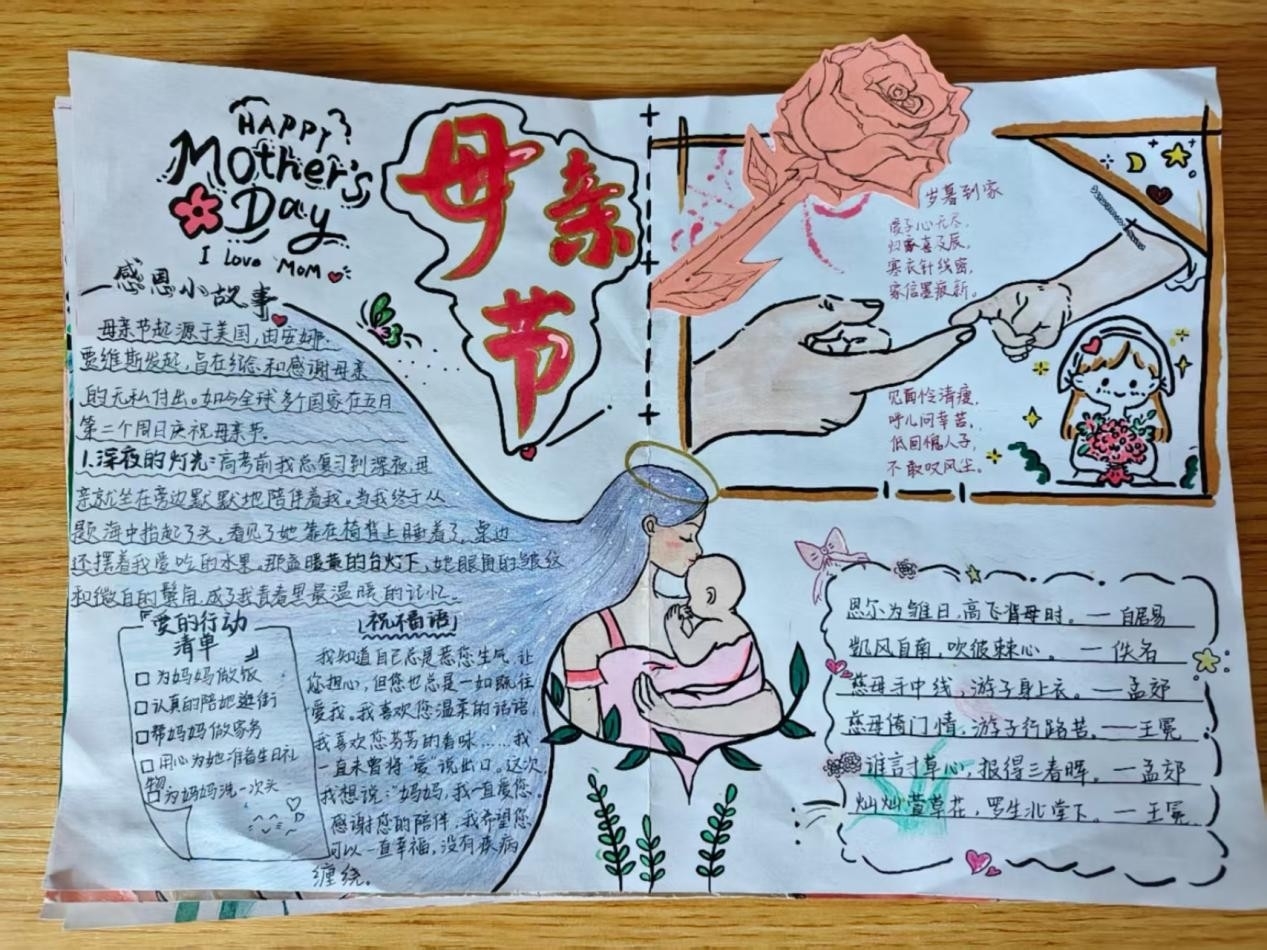 HAPPY
Mother's
Day
I Love MOM
母亲
节
感恩小故事
母亲节起源于美国,由安娜·
贾维斯发起,旨在纪念和感谢母亲
的无私付出。如今全球多个国家在五月
第二个周日庆祝母亲节.
1.深夜的灯光:高考前我总复习到深夜,母
亲就坐在旁边默默地陪伴着我。当我终于从
题海中抬起了头,看见了她靠在椅背上睡着了,桌边
还摆着我爱吃的水果。那盏暖黄的台灯下,她眼角的皱纹
和微白的鬓角,成了我青春里最温暖的记忆。
爱的行动
清单
为妈妈做饭
认真的陪她逛街
帮妈妈做家务
用心为她准备生日礼
物
为妈妈洗一次头
祝福语
我知道自己总是惹您生气,让
您担心,但您也总是一如既往
爱我。我喜欢您温柔的话语,
我喜欢您芬芳的香味……我
一直未曾将"爱"说出口。这次,
我想说:"妈妈,我一直爱您,
感谢您的陪伴,我希望您
可以一直幸福,没有疾病
缠绕。
岁暮到家
爱子心无尽,
归家喜及辰。
寒衣针线密,
家信墨痕新。
见面怜清瘦,
呼儿问辛苦。
低回愧人子,
不敢叹风尘。
思尔为雏日,高飞背母时。—白居易
凯风自南,吹彼棘心。—佚名
慈母手中线,游子身上衣。—孟郊
慈母倚门情,游子行路苦。—王冕
谁言寸草心,报得三春晖。—孟郊
灿灿萱草花,罗生北堂下。—王冕